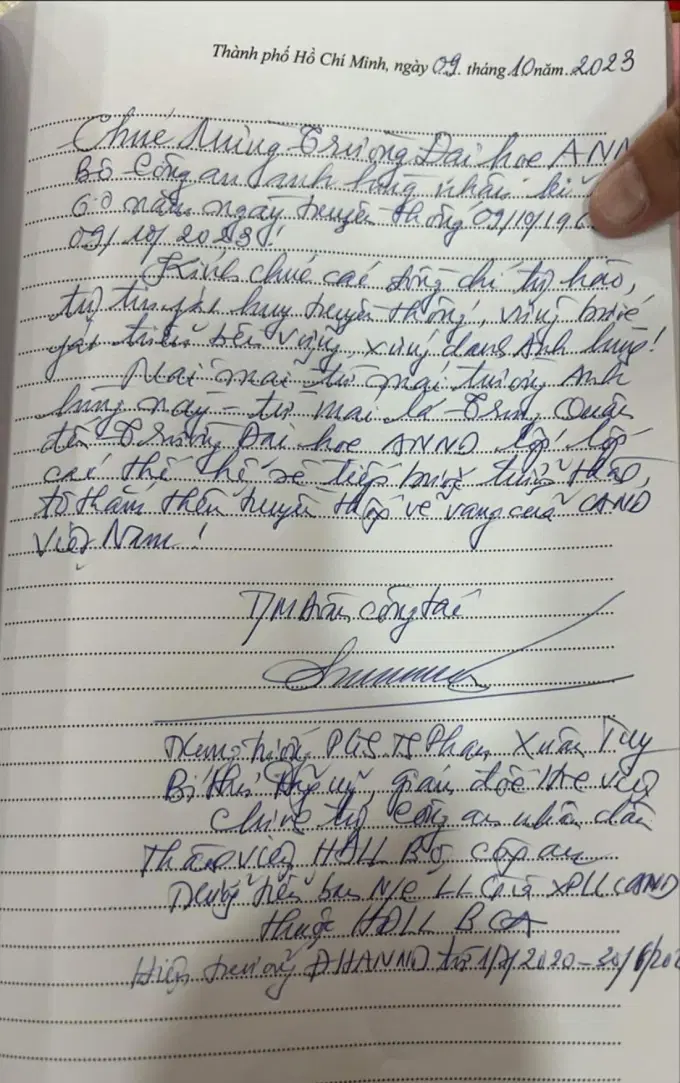 Thành phố Hồ Chí Minh, ngày 09 tháng 10 năm 2023
Chúc Mừng Trường Đại học ANN
Bộ Công an anh hùng nhân kỉ
60 năm ngày truyền thống 09/10/196
09/10/2023!
Kính chúc các đồng chí tự hào,
tự tin phát huy truyền thống, vững bước
phát triển bền vững, xứng danh Anh hùng!
Mai mái tường Anh
hùng này – từ mái lá Trung Quân
đến Trường Đại học ANND lớp lớp
các thế hệ sẽ tiếp bước
tô thắm thêm truyền thống vẻ vang của CAND
Việt Nam!
T/M Đoàn công tác
Thiếu tướng PGS.TS Phan Xuân Tuy
Bí thư Đảng uỷ, giám đốc Học viện
Chính trị Công an nhân dân
Thành viên HĐLL Bộ công an
Trưởng tiểu ban N/c LL CT và XDLL CAND
thuộc HĐLL BCA
Hiệu trưởng ĐHANND từ 1/7/2020–30/6/202